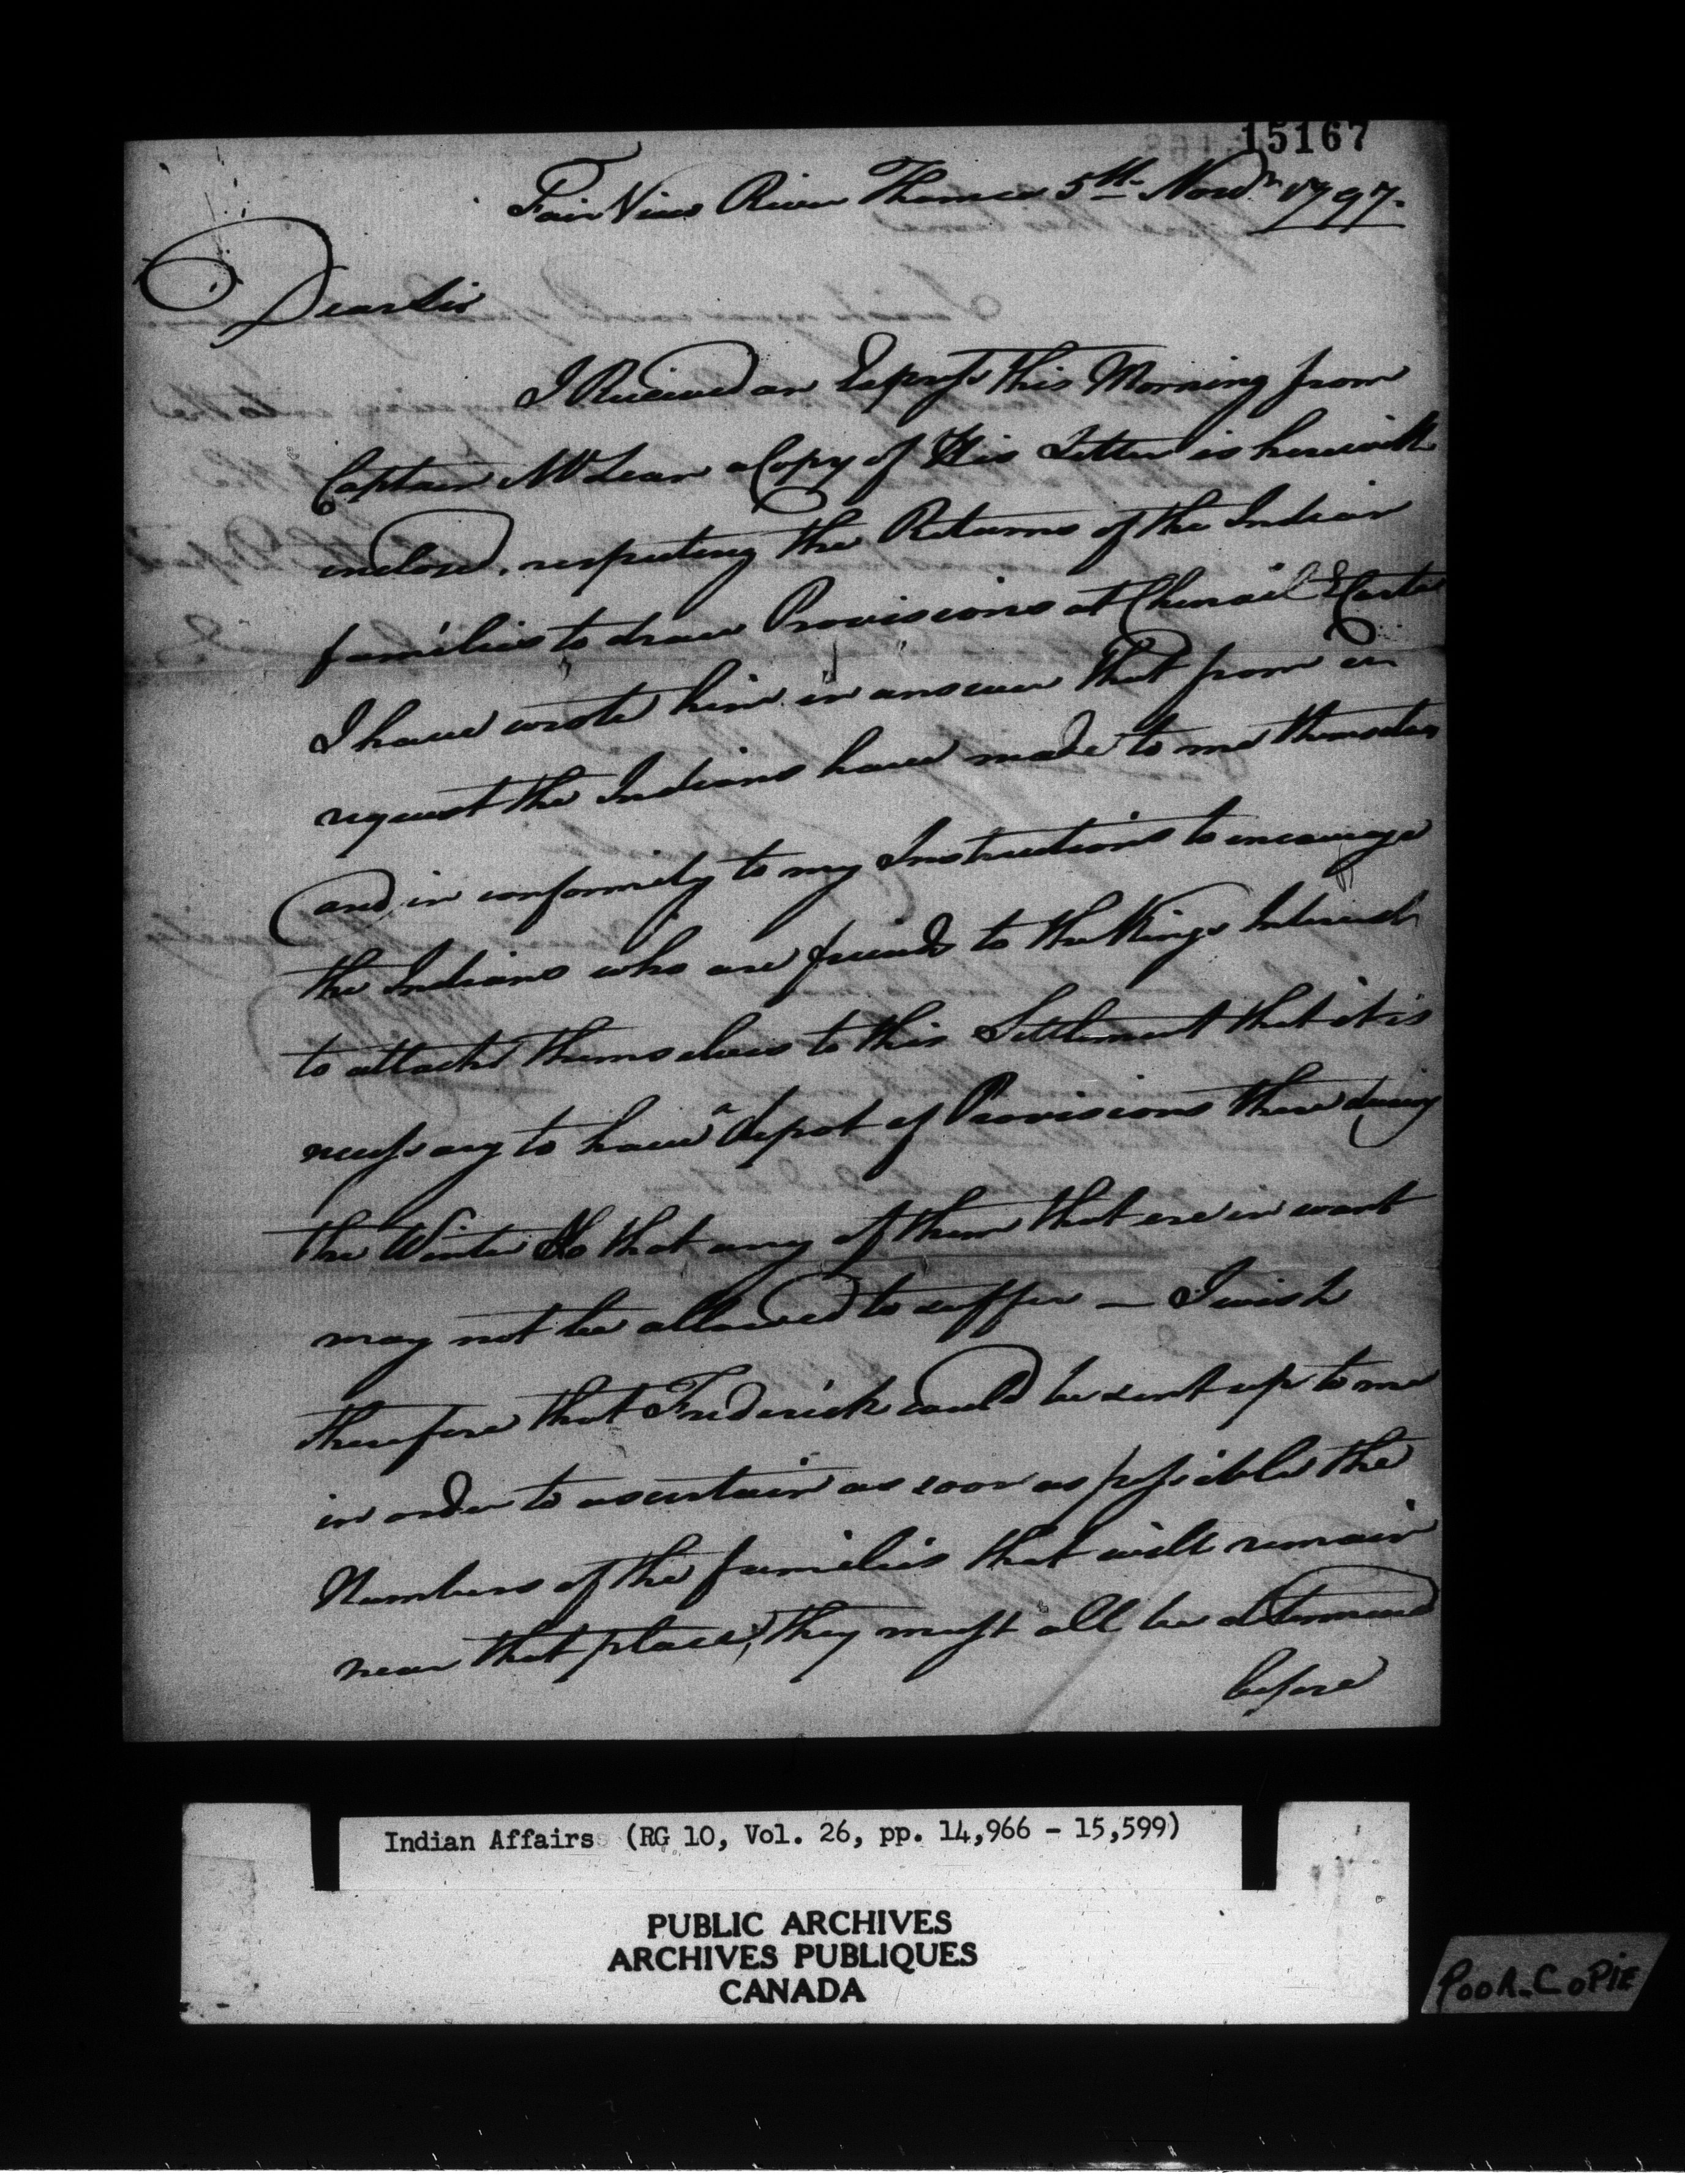 15167
Fair View River Thames 5th Novr 1797.
Dear Sir
I Received an Express this Morning from
Captain McLean a Copy of His Letter is herewith
inclosed, respecting the Returns of the Indian
families to draw Provisions at Chenail Ecarte
I have wrote him in answer that from a
request the Indians have made to me themselves
and in conformity to my Instructions to encourage
the Indians who are friends to the Kings Interest
to attach themselves to this Settlement that it is
necessary to have a depot of Provisions there during
the Winter So that any of them that are in want
may not be allowed to suffer — I wish
therefore that Frederick could be sent up to me
in order to ascertain as soon as possible the
Numbers of the families that will remain
near that place, they must all be determined
before
Indian Affairs (RG 10, Vol. 26, pp. 14,966 - 15,599)
PUBLIC ARCHIVES
ARCHIVES PUBLIQUES
CANADA
POOR-COPIE